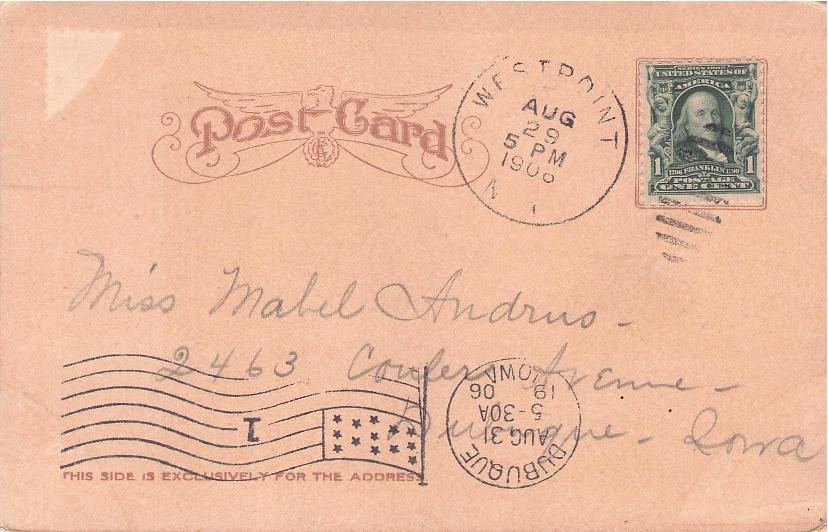 Post Card
WEST POINT
AUG
29
5 PM
1906
N Y
SERIES 1902
UNITED STATES OF
AMERICA
1 1
1706 FRANKLIN 1790
POSTAGE
ONE CENT
Miss Mabel Andrus -
2463 Coulers Avenue -
Dubuque - Iowa
1
DUBUQUE
AUG 31
5-30A
19 06
IOWA
THIS SIDE IS EXCLUSIVELY FOR THE ADDRESS